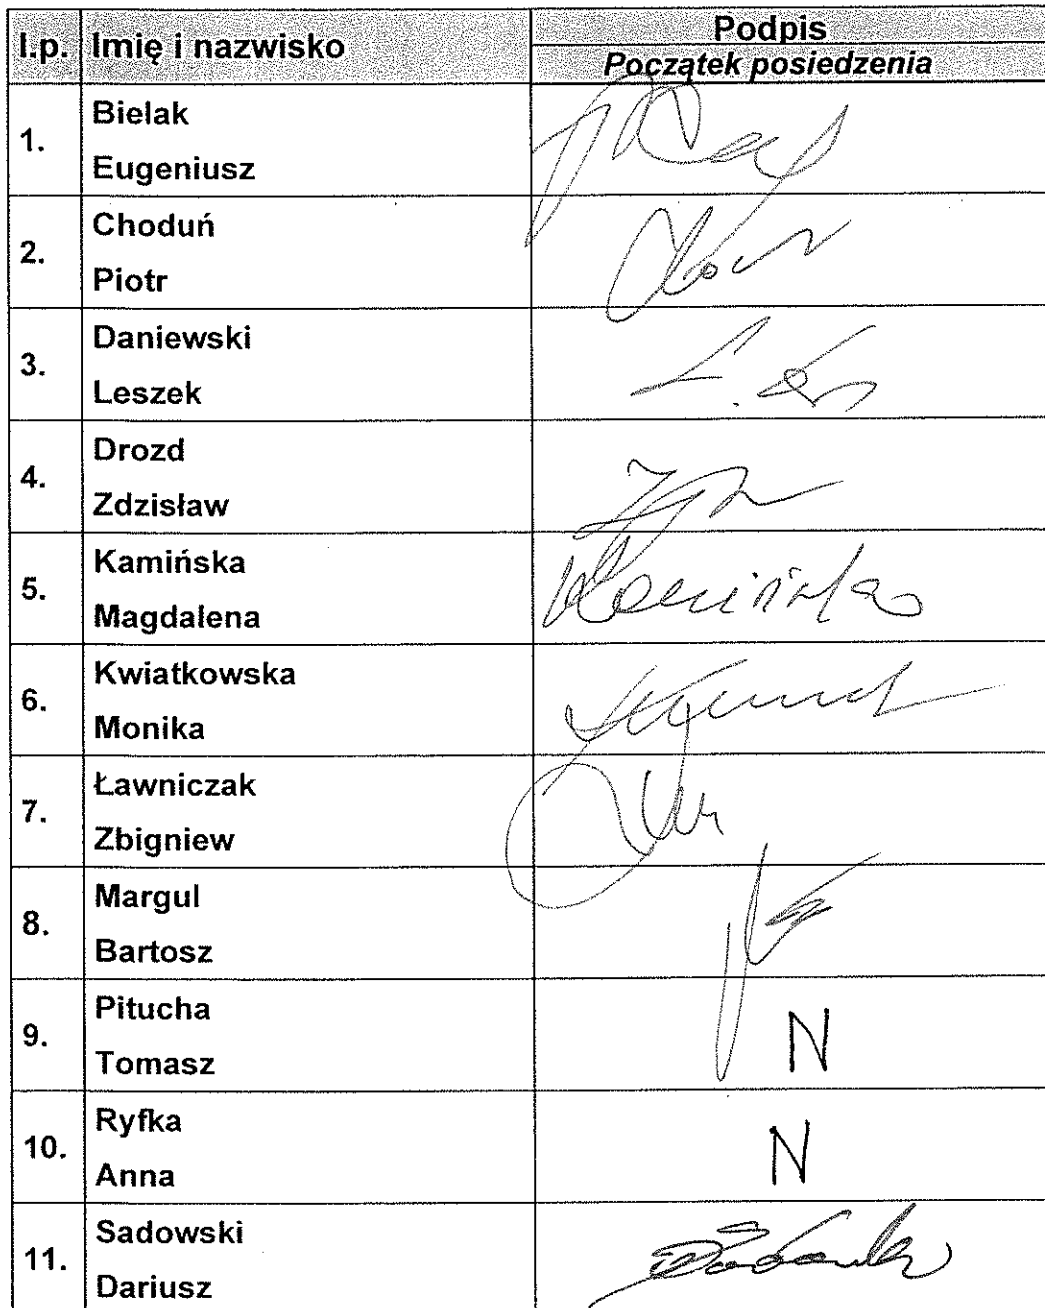 l.p. Imię i nazwisko Podpis
Początek posiedzenia
1. Bielak
Eugeniusz
2. Choduń
Piotr
3. Daniewski
Leszek
4. Drozd
Zdzisław
5. Kamińska
Magdalena
Kamińska
6. Kwiatkowska
Monika
7. Ławniczak
Zbigniew
8. Margul
Bartosz
9. Pitucha
Tomasz
N
10. Ryfka
Anna
N
11. Sadowski
Dariusz